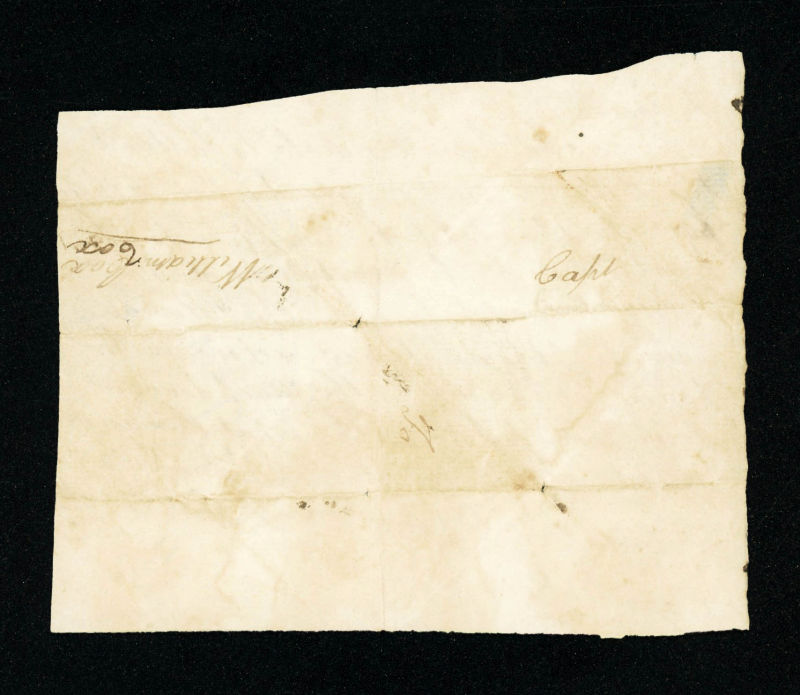 Capt
William Cox
Cox